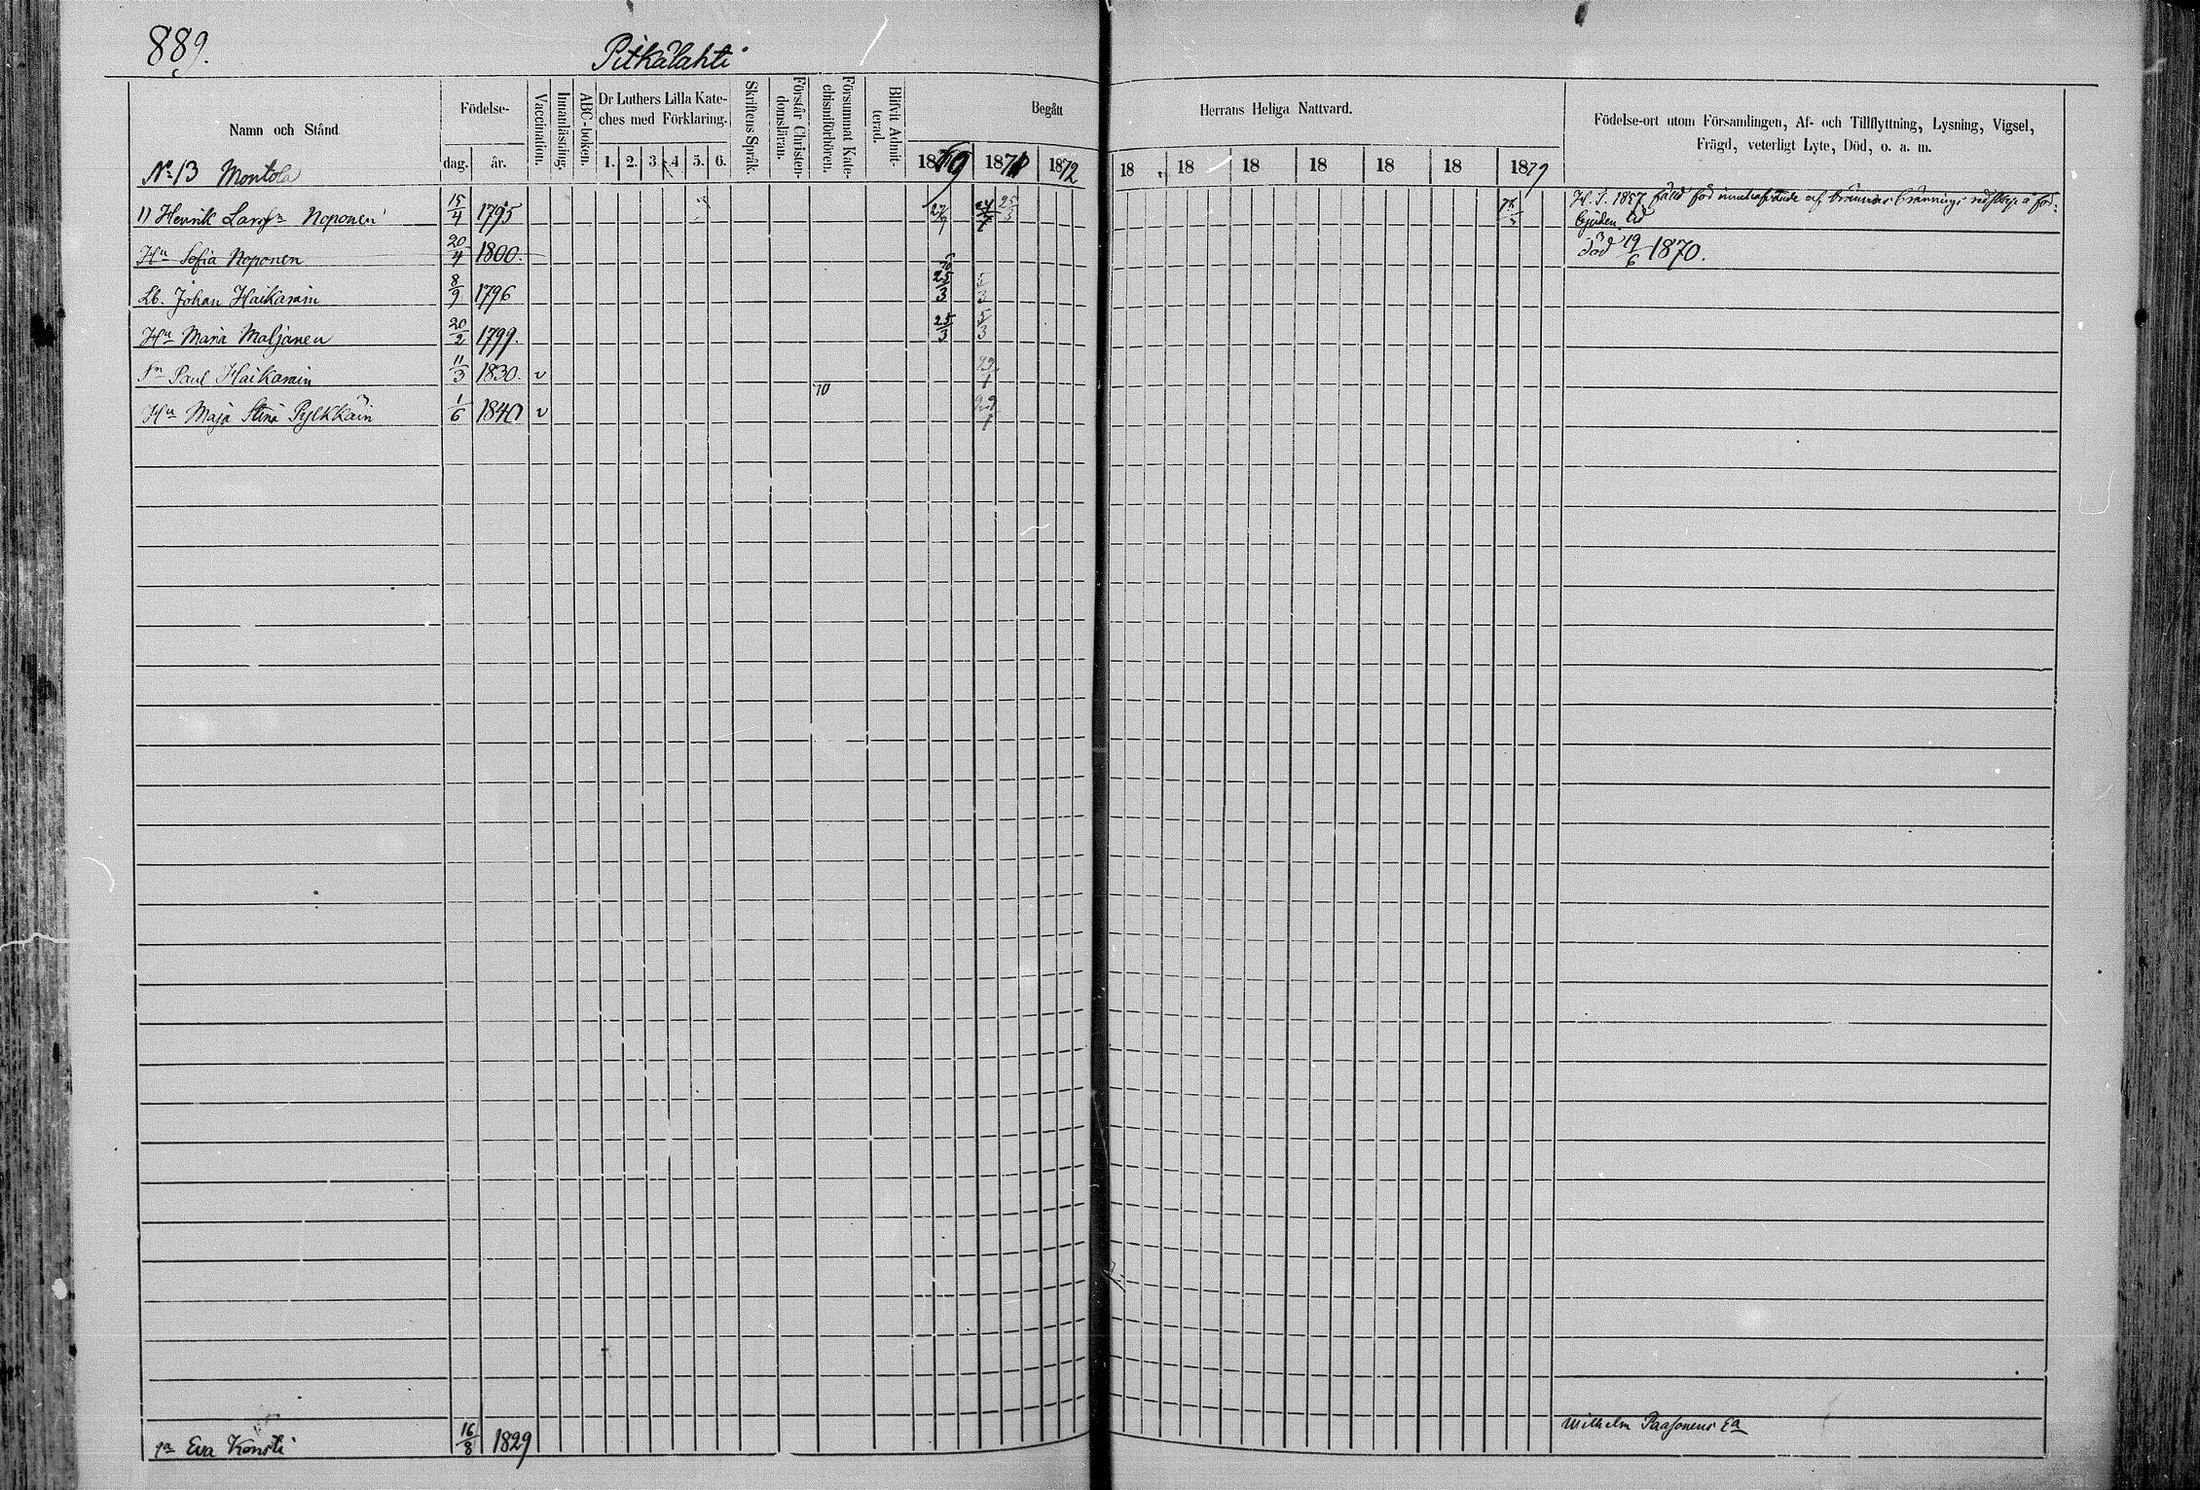 889.
Pitkälahti
Namn och Stånd.
Födelse-
dag. år.
Vaccination.
Innanläsning.
ABC-boken.
Dr Luthers Lilla Kate-
ches med Förklaring.
1. 2. 3 4 5. 6.
Skriftens Språk.
Förstår Christen-
domsläran.
Försummat Kate-
chismiförhören.
Blifvit Admit-
terad.
Begått Herrans Heliga Nattvard.
1869 1871 1872 18 18 18 18 18 18 1879
Födelse-ort utom Församlingen, Af- och Tillflyttning, Lysning, Vigsel,
Frägd, veterligt Lyte, Död, o. a. m.
No 13 Montola
1) Henrik Larsson Noponen 15/4 1795 27/9 25/3
H. T. 1857 fälld för
tid
Hu Sofia Noponen 20/4 1800. död 19/6 1870.
Lb. Johan Haikarain 8/9 1796 25/3 5/3
Hu Maria Maljanen 20/2 1799. 25/3 5/3
Sn Paul Haikarain 11/3 1830. v
70
Hu Maja Stina Pylkkäin 1/6 1840 v
Eva Konsti 16/8 1829 Wilhelm Paasonens Ea